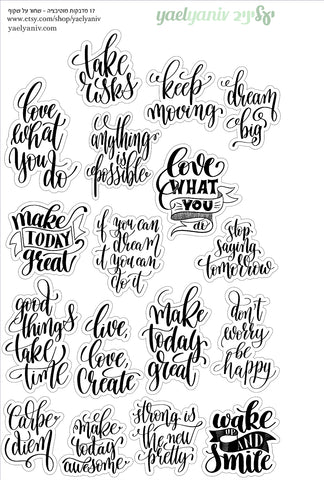 17 מדבקות מוטיבציה - שחור על שקוף
www.etsy.com/shop/yaelyaniv
yaelyaniv.com
yaelyaniv יעליניב
take
risks
keep
moving
dream
big
love
what
you
do
anything
is
possible
love
WHAT
YOU
do
make
TODAY
great
if you can
dream
it you can
do it
stop
saying
tomorrow
good
things
take
time
live,
love,
create
make
today
great
don't
worry
be
happy
Carpe
diem
make
today
awesome
strong is
the new
pretty
wake
UP AND
smile